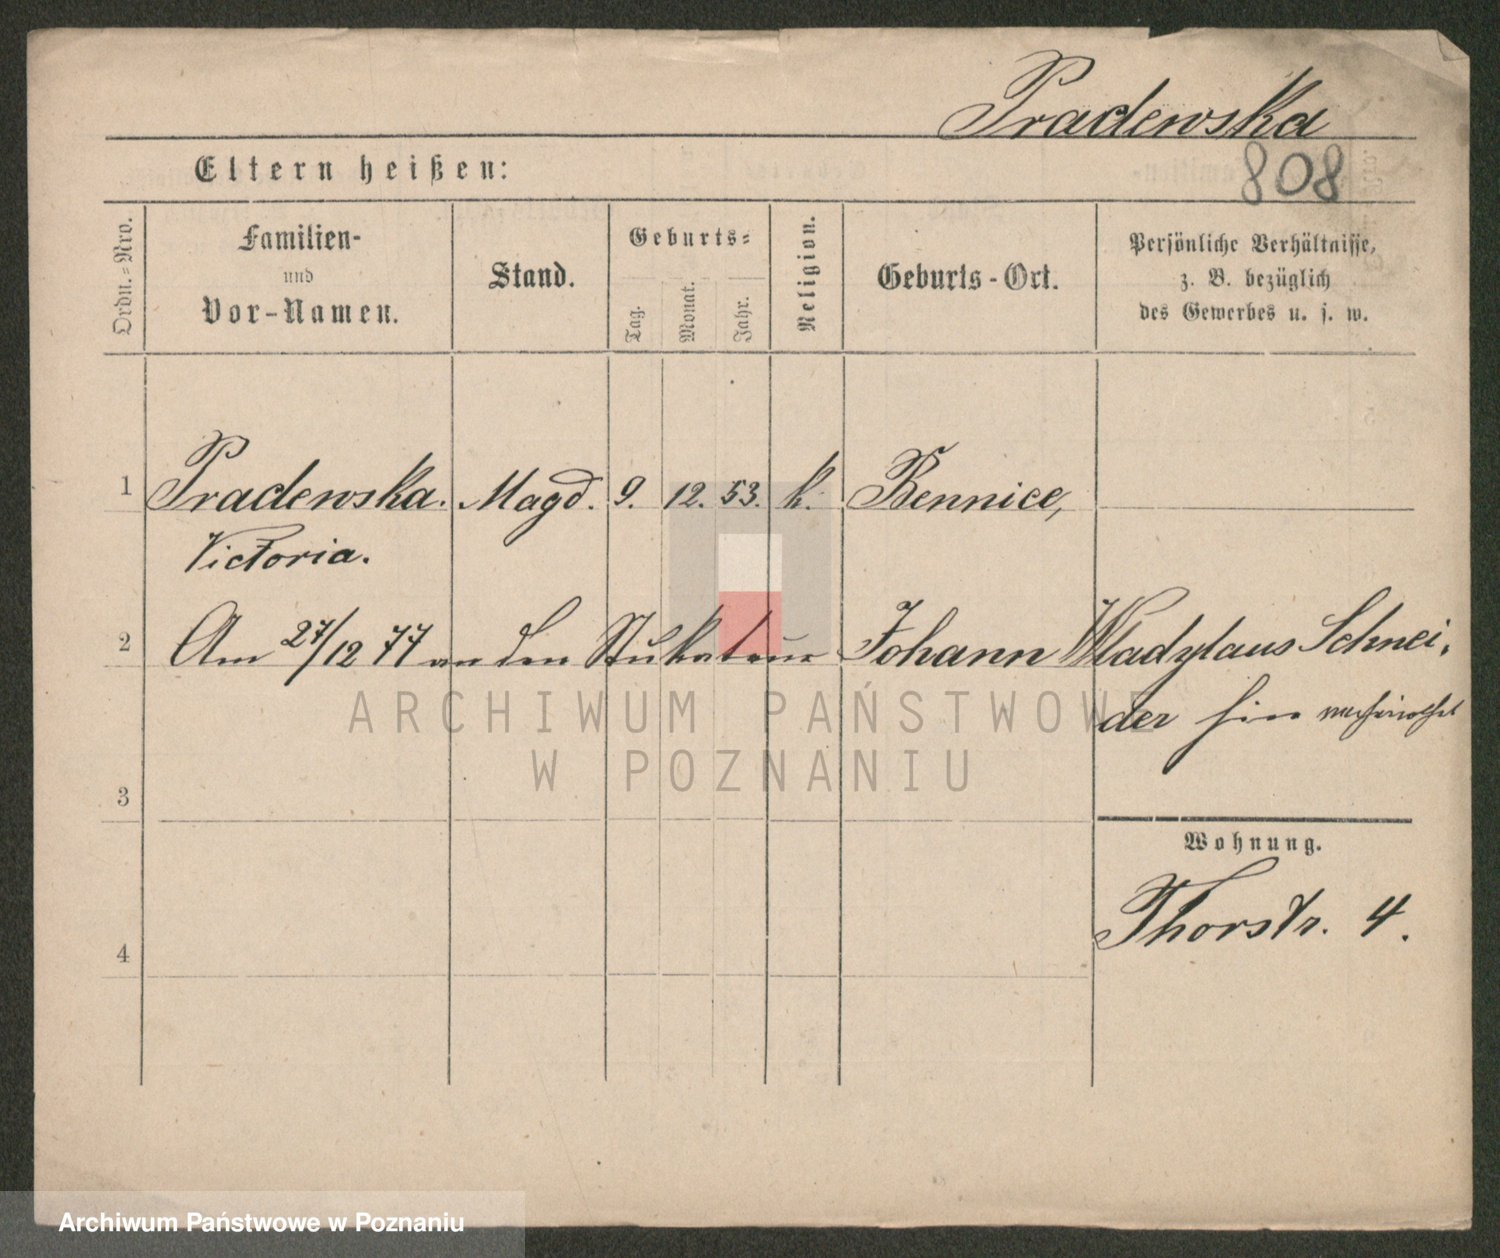 Pradewska
808
Eltern heißen:
Ordn.=Nro.
Familien-
und
Vor-Namen.
Stand.
Geburts=
Tag.
Monat.
Jahr.
Religion.
Geburts-Ort.
Persönliche Verhältnisse,
z. B. bezüglich
des Gewerbes u. s. w.
1 Pradewska. Magd. 9. 12. 53. k. Bennice,
Victoria.
2 Am 27/12 77 an den Stukateur Johann Wladylaus Schnei-
der hier verheirathet
3
Wohnung.
Thorstr. 4.
4
ARCHIWUM PAŃSTWOWE
W POZNANIU
Archiwum Państwowe w Poznaniu